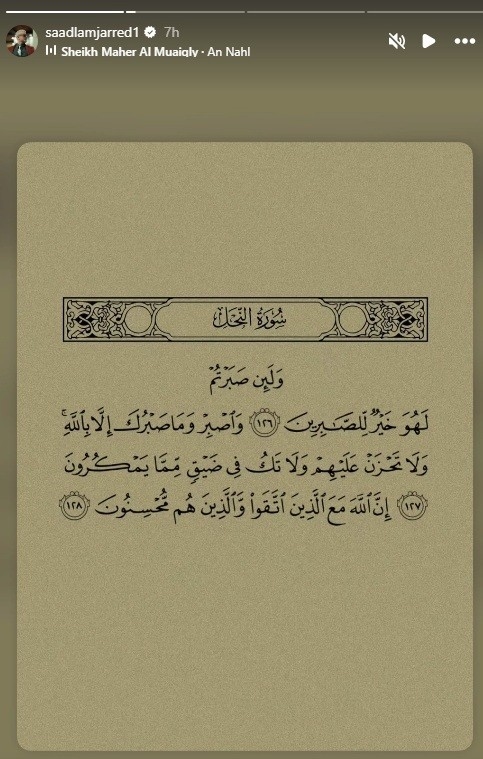 saadlamjarred1 7h
Sheikh Maher Al Muaiqly · An Nahl
سُورَةُ النَّحۡلِ
وَلَئِن صَبَرۡتُمۡ
لَهُوَ خَيۡرٞ لِّلصَّٰبِرِينَ ١٢٦ وَٱصۡبِرۡ وَمَا صَبۡرُكَ إِلَّا بِٱللَّهِۚ
وَلَا تَحۡزَنۡ عَلَيۡهِمۡ وَلَا تَكُ فِي ضَيۡقٖ مِّمَّا يَمۡكُرُونَ
١٢٧ إِنَّ ٱللَّهَ مَعَ ٱلَّذِينَ ٱتَّقَواْ وَّٱلَّذِينَ هُم مُّحۡسِنُونَ ١٢٨